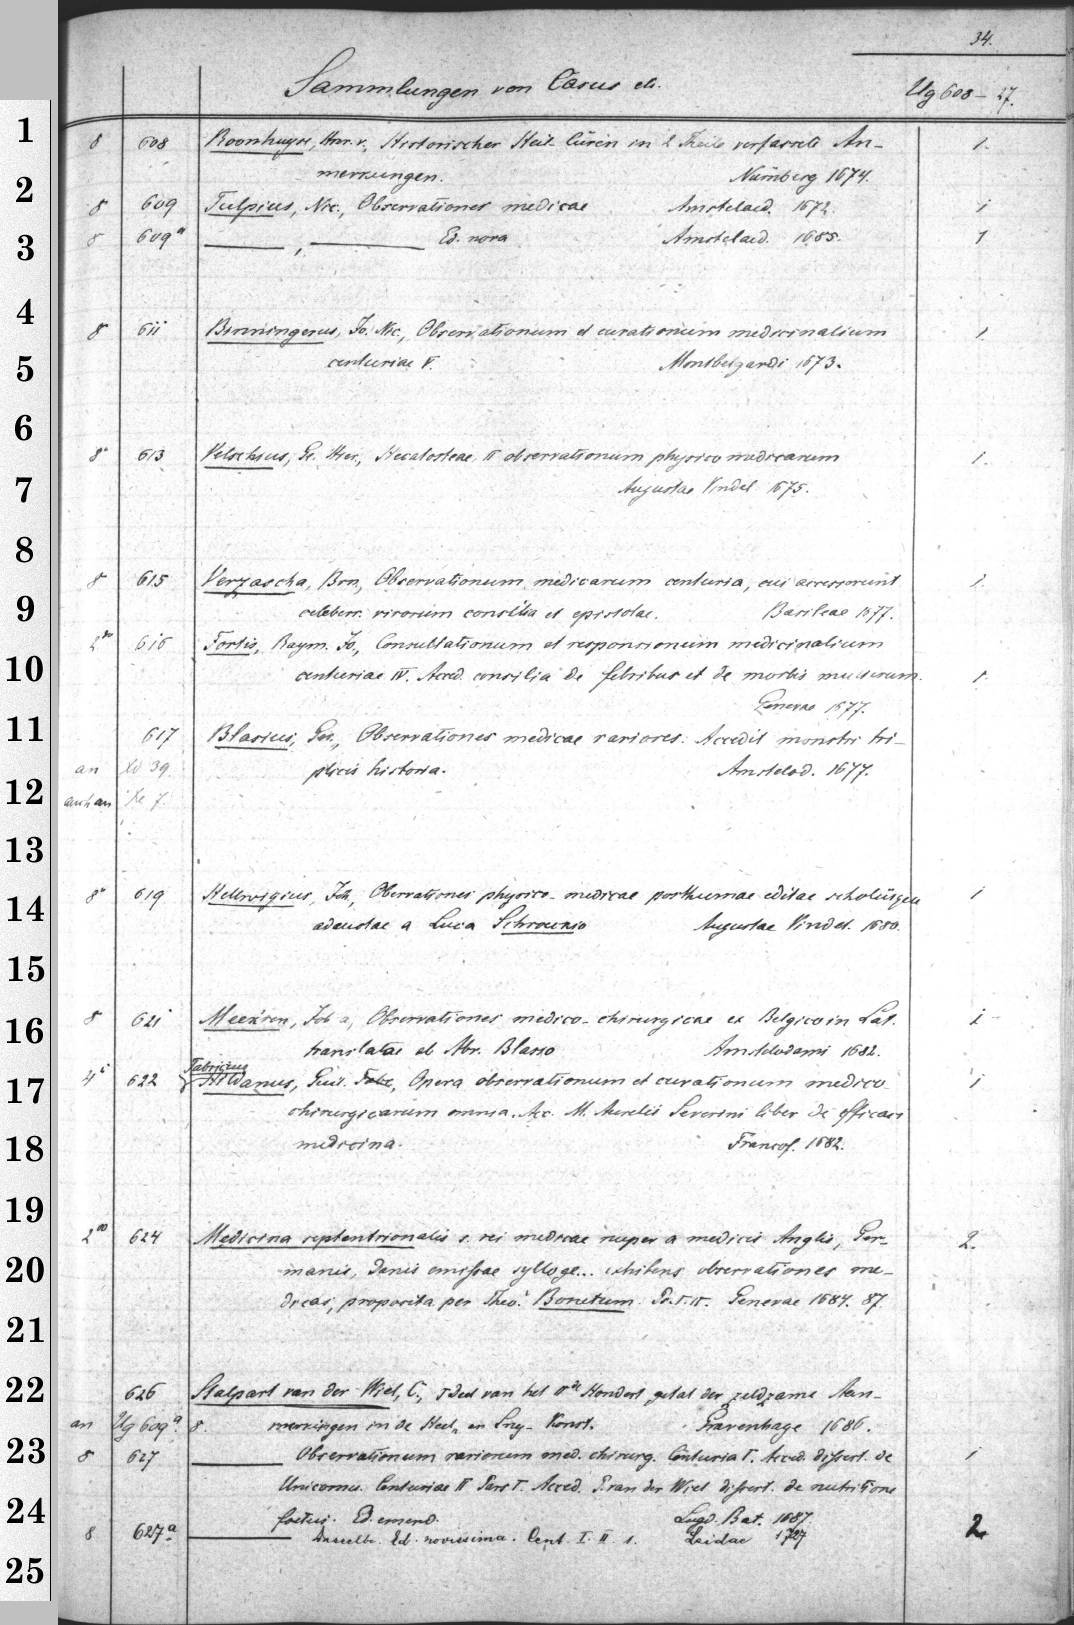 34.
Sammlungen von Casus etc. Ug 608-27.
8 608 Roonhuyse, Hnr. v., Historischer Heil Curen in 2 Theile verfassete An- 1.
merkungen. Nürnberg 1674.
8 609 Tulpius, Nic., Observationes medicae Amstelaed. 1672. 1
8 609a ——, —— Ed. nova Amstelaed. 1685. 1
8 611 Binningerus, Jo. Nic., Observationum et curationum medicinalium 1.
centuriae V. Montbelgardi 1673.
8° 613 Velschius, Ge. Hier., Hecatosteae II observationum physico medicarum 1.
Augustae Vindel. 1675.
8 615 Verzascha, Brn., Observationum medicarum centuria, cui accesserunt 1.
celeberr. virorum consilia et epistolae. Basileae 1677.
2° 616 Fortis, Raym. Jo., Consultationum et responsionum medicinalium
centuriae IV. Acced. consilia de febribus et de morbis mulierum. 1.
Genevae 1677.
617 Blasius, Ger., Observationes medicae rariores. Accedit monstri tri-
an Xd 39. plicis historia. Amstelod. 1677.
auch an Xe 7.
8° 619 Hellwigius, Joh., Observationes physico-medicae posthumae editae scholiisque 1
adauctae a Luca Schrockio Augustae Vindel. 1680.
8 621 Meekren, Job a, Observationes medico-chirurgicae ex Belgico in Lat. 1
translatae ab Abr. Blasio Amstelodami 1682.
Fabricius
4° 622 Hildanus, Guil. Fabr., Opera observationum et curationum medico 1
chirurgicarum omnia. Acc. M. Aurelii Severini liber de efficaci
medicina. Francof. 1682.
2° 624 Medicina septentrionalis s. rei medicae nuper a medicis Anglis, Ger- 2.
manis, Danis emissae sylloge... exhibens observationes me-
dicas, proposita per Theo. Bonetum. P. I. II. Genevae 1684. 87.
626 Stalpart van der Wiel, C., I deel van het IIde Hondert getal der zeldzame Aan-
an Ug 609a. 8. merkingen in de Heel- en Sny-Konst. Gravenhage 1686.
8 627 —— Observationum rariorum med. chirurg. Centuria I. Acced. dissert. de 1
Unicornu. Centuriae II Pars I. Acced. P. van der Wiel dissert. de nutritione
foetus. Ed. emend. Lugd. Bat. 1687.
8 627a —— Dasselbe. Ed. novissima. Cent. I. II. 1. Leidae 1727 2
1
2
3
4
5
6
7
8
9
10
11
12
13
14
15
16
17
18
19
20
21
22
23
24
25